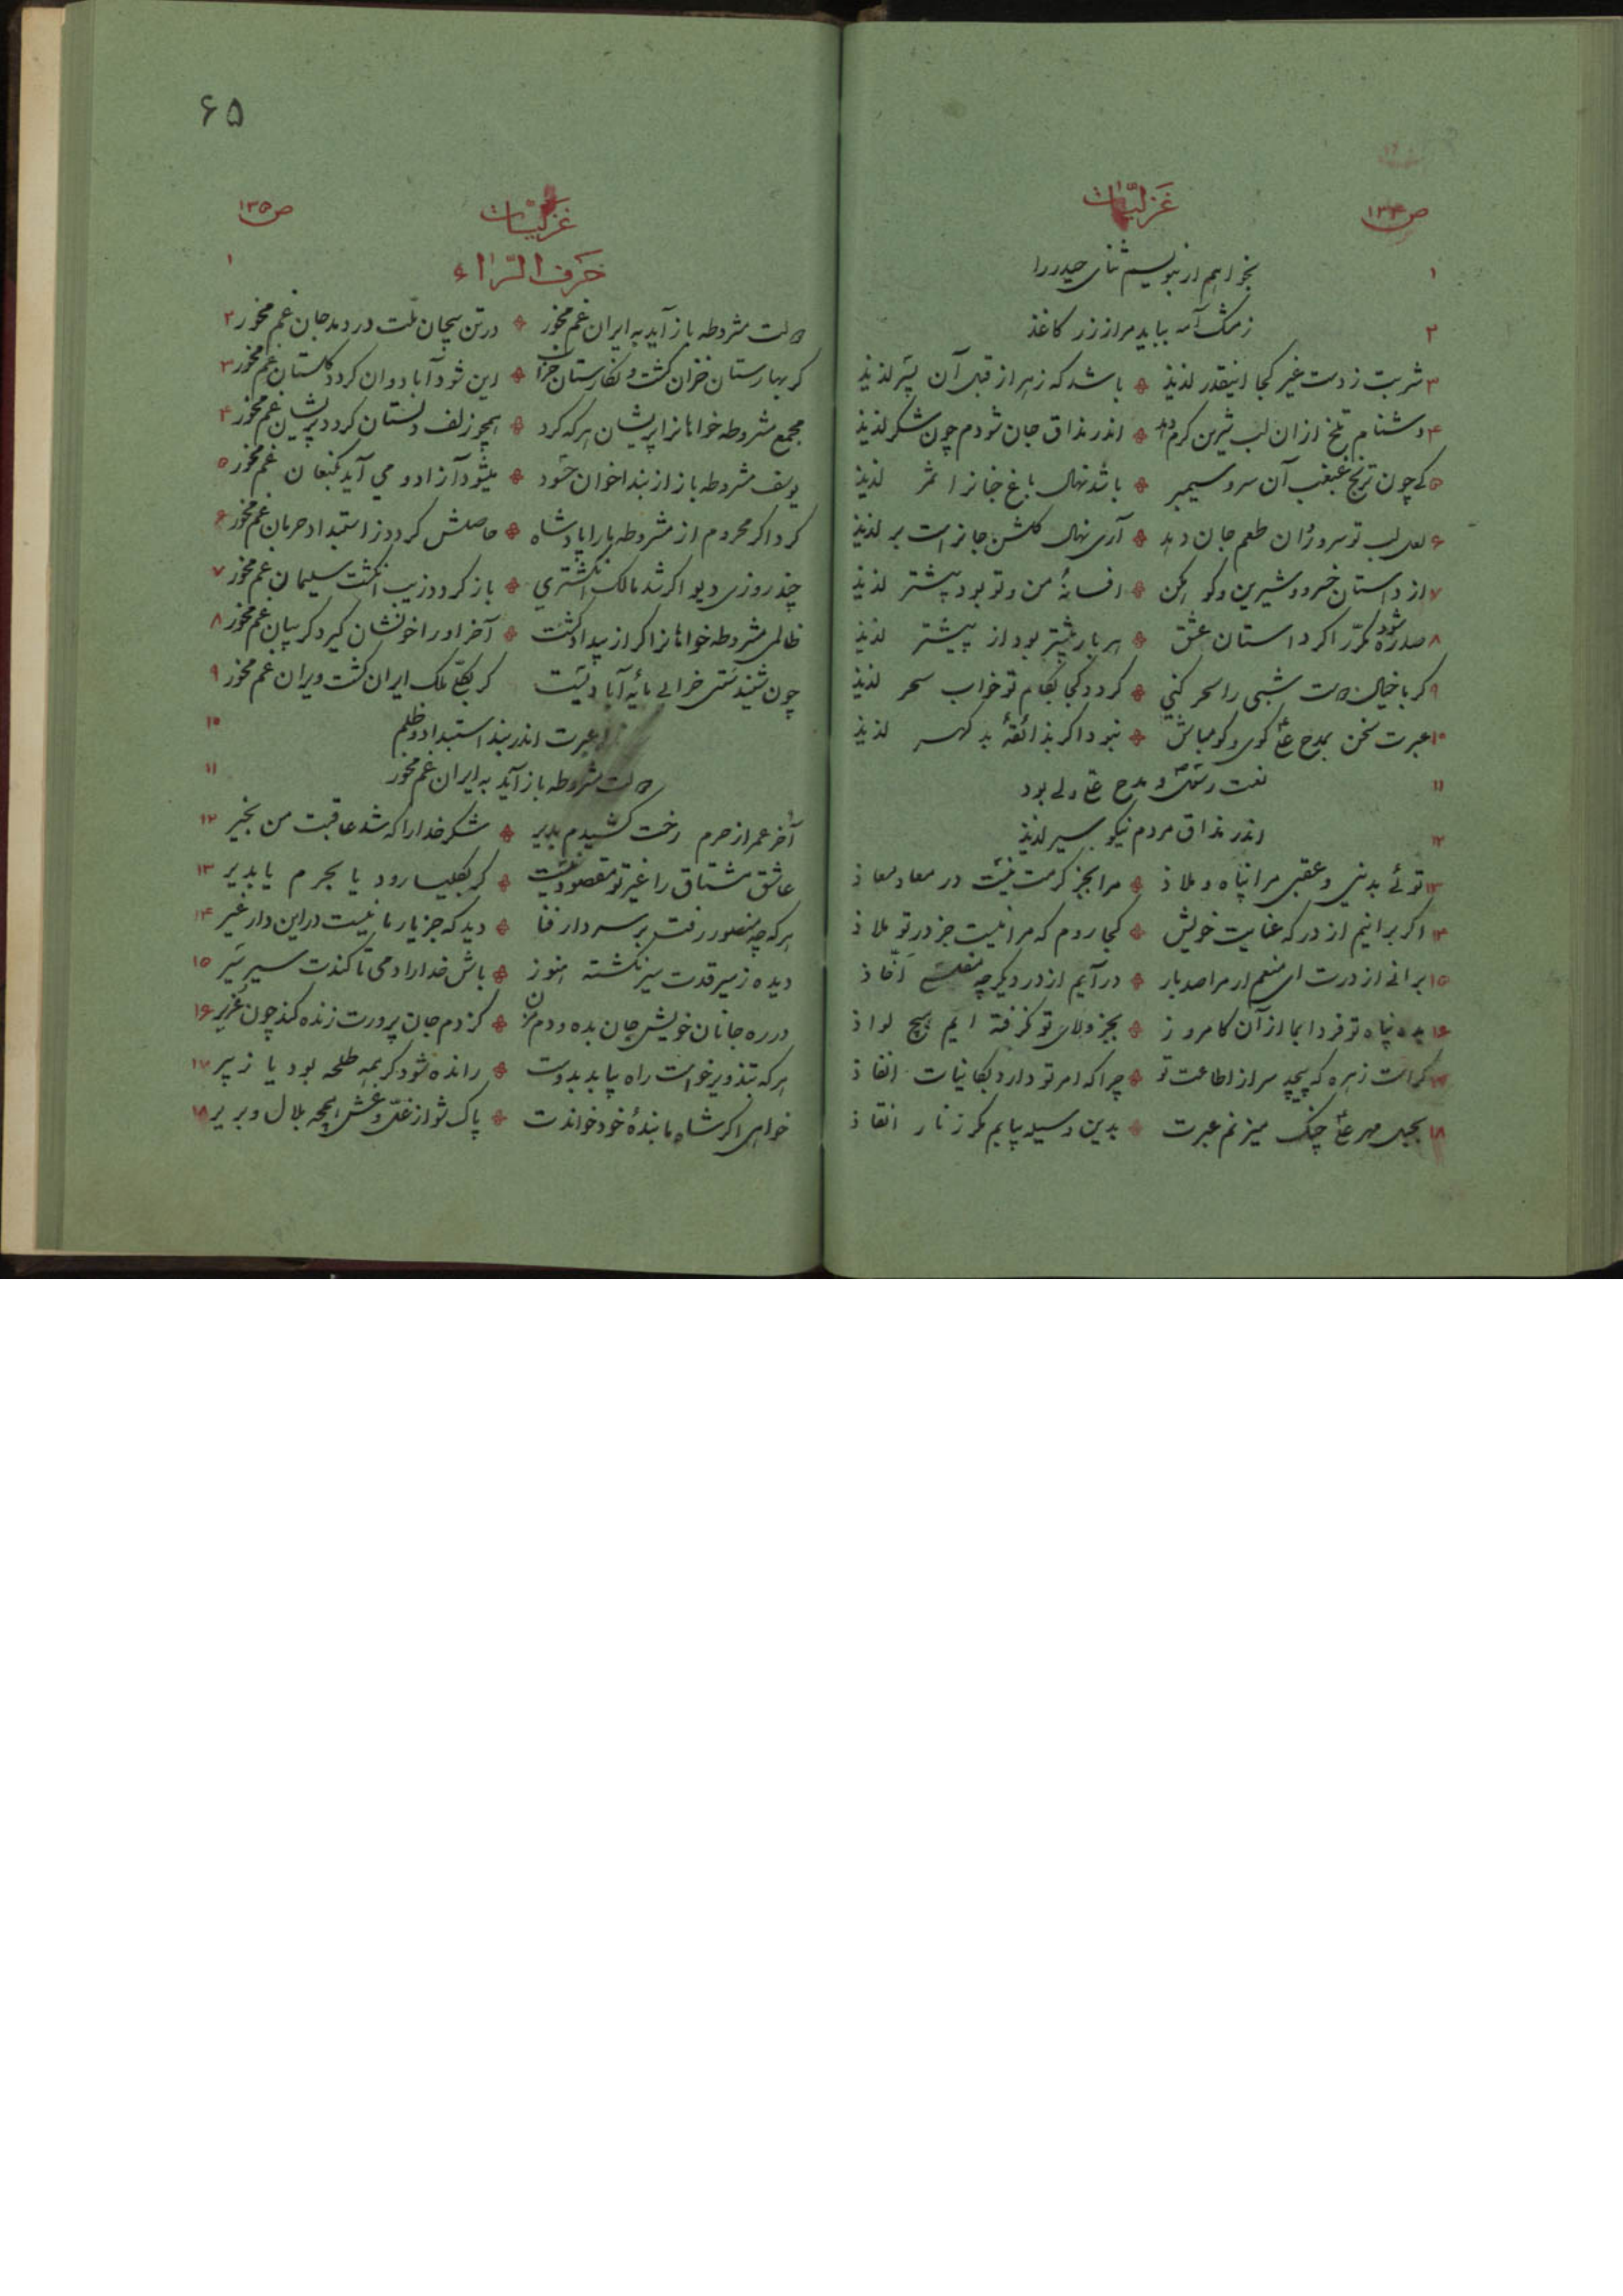 غزلیات
ص۱۳۴
۱ بخواهم ار بنویسم ثنای حیدر را
۲ زمشک آمه بباید مرا ز زر کاغذ
۳ شربت ز دست غیر کجا اینقدر لذیذ * باشد که زهر از قبل آن پسر لذیذ
۴ دشنام تلخ ازان لب شیرین کرم دهد * اندر مذاق جان شودم چون شکر لذیذ
۵ کی چون ترنج غبغب آن سرو سیمبر * باشد نهال باغ جنانرا ثمر لذیذ
۶ لعل لب تو سرو روان طعم جان دهد * آری نهال کلشن جانراست بر لذیذ
۷ از داستان خسرو و شیرین مکو که * افسانهٔ من و تو بود بیشتر لذیذ
۸ صدره شود مکرّر اکر داستان عشق * هر بار بیشتر بود از پیشتر لذیذ
۹ کر با خیال دوست شبی را سحر کنی * کردد کجا بکام تو خواب سحر لذیذ
۱۰ عبرت سخن بمدح علی کوی و کو مباش * نبود اکر بذائقهٔ بد کهر لذیذ
۱۱ نعت رسول و مدح علی ولی بود
۱۲ اندر مذاق مردم نیکو سیر لذیذ
۱۳ توئی بدنیی و عقبی مرا پناه و ملاذ * مرا بجز کرمت نیست در معاد معاذ
۱۴ اکر برانیم از درکه عنایت خویش * کجا روم که مرا نیست جز در تو ملاذ
۱۵ برانی از درت ای منعم ار مرا صد بار * در آیم از در دیکر چه
۱۶ بده پناه تو فردا بما از آن کامروز * بجز ولای تو نکرفته ایم هیچ لواذ
۱۷ کراست زهره که پیچد سر از اطاعت تو * چرا که امر تو دارد بکاینات انفاذ
۱۸ بحبل مهر علی چنک میزنم عبرت * بدین وسیله بیابم مکر ز نار انقاذ
۶۵
غزلیات
ص۱۳۵
حرف الرّاء ۱
دولت مشروطه باز آید به ایران غم مخور * در تن بیجان ملت در دمد جان غم مخور ۲
کر بهارستان خزان کشت و نکارستان خراب * این شود آباد و ان کردد کلستان غم مخور ۳
مجمع مشروطه خواهانرا پریشان هر که کرد * همچو زلف دلستان کردد پریشان غم مخور ۴
یوسف مشروطه باز از بند اخوان حسود * میشود آزاد و می آید بکنعان غم مخور ۵
کرد اکر محروم از مشروطه یارا پادشاه * حاصلش کردد ز استبداد حرمان غم مخور ۶
چند روزی دیو اکر شد مالک انکشتری * باز کردد زیب انکشت سلیمان غم مخور ۷
ظالمی مشروطه خواهانرا اکر از بیداد کشت * آخر او را خونشان کیرد کریبان غم مخور ۸
چون شنیدستی خرابی مایهٔ آبادیست کر بکلّی ملک ایران کشت ویران غم مخور ۹
عبرت اندر بند استبداد و ظلم ۱۰
دولت مشروطه باز آید به ایران غم مخور ۱۱
آخر عمر از حرم رخت کشیدم بدیر * شکر خدا را که شد عاقبت من بخیر ۱۲
عاشق مشتاق را غیر تو مقصود نیست * کر بکلیسا رود یا بحرم یا بدیر ۱۳
هر که چو منصور رفت بر سر دار فنا * دید که جز یار ما نیست در این دار غیر ۱۴
دیده ز سیر قدت سیر نکشته هنوز * باش خدا را دمی تا کندت سیر سیر ۱۵
در ره جانان خویش جان بده و دم مزن * کز دم جان پرورت زنده کند چون عزیر ۱۶
هر که بتذویر خواست راه بیابد بدوست * رانده شود کر همه طلحه بود یا زبیر ۱۷
خواهی اکر شاه ما بندهٔ خود خواندت * پاک شو از غلّ و غش همچه بلال و بریر ۱۸